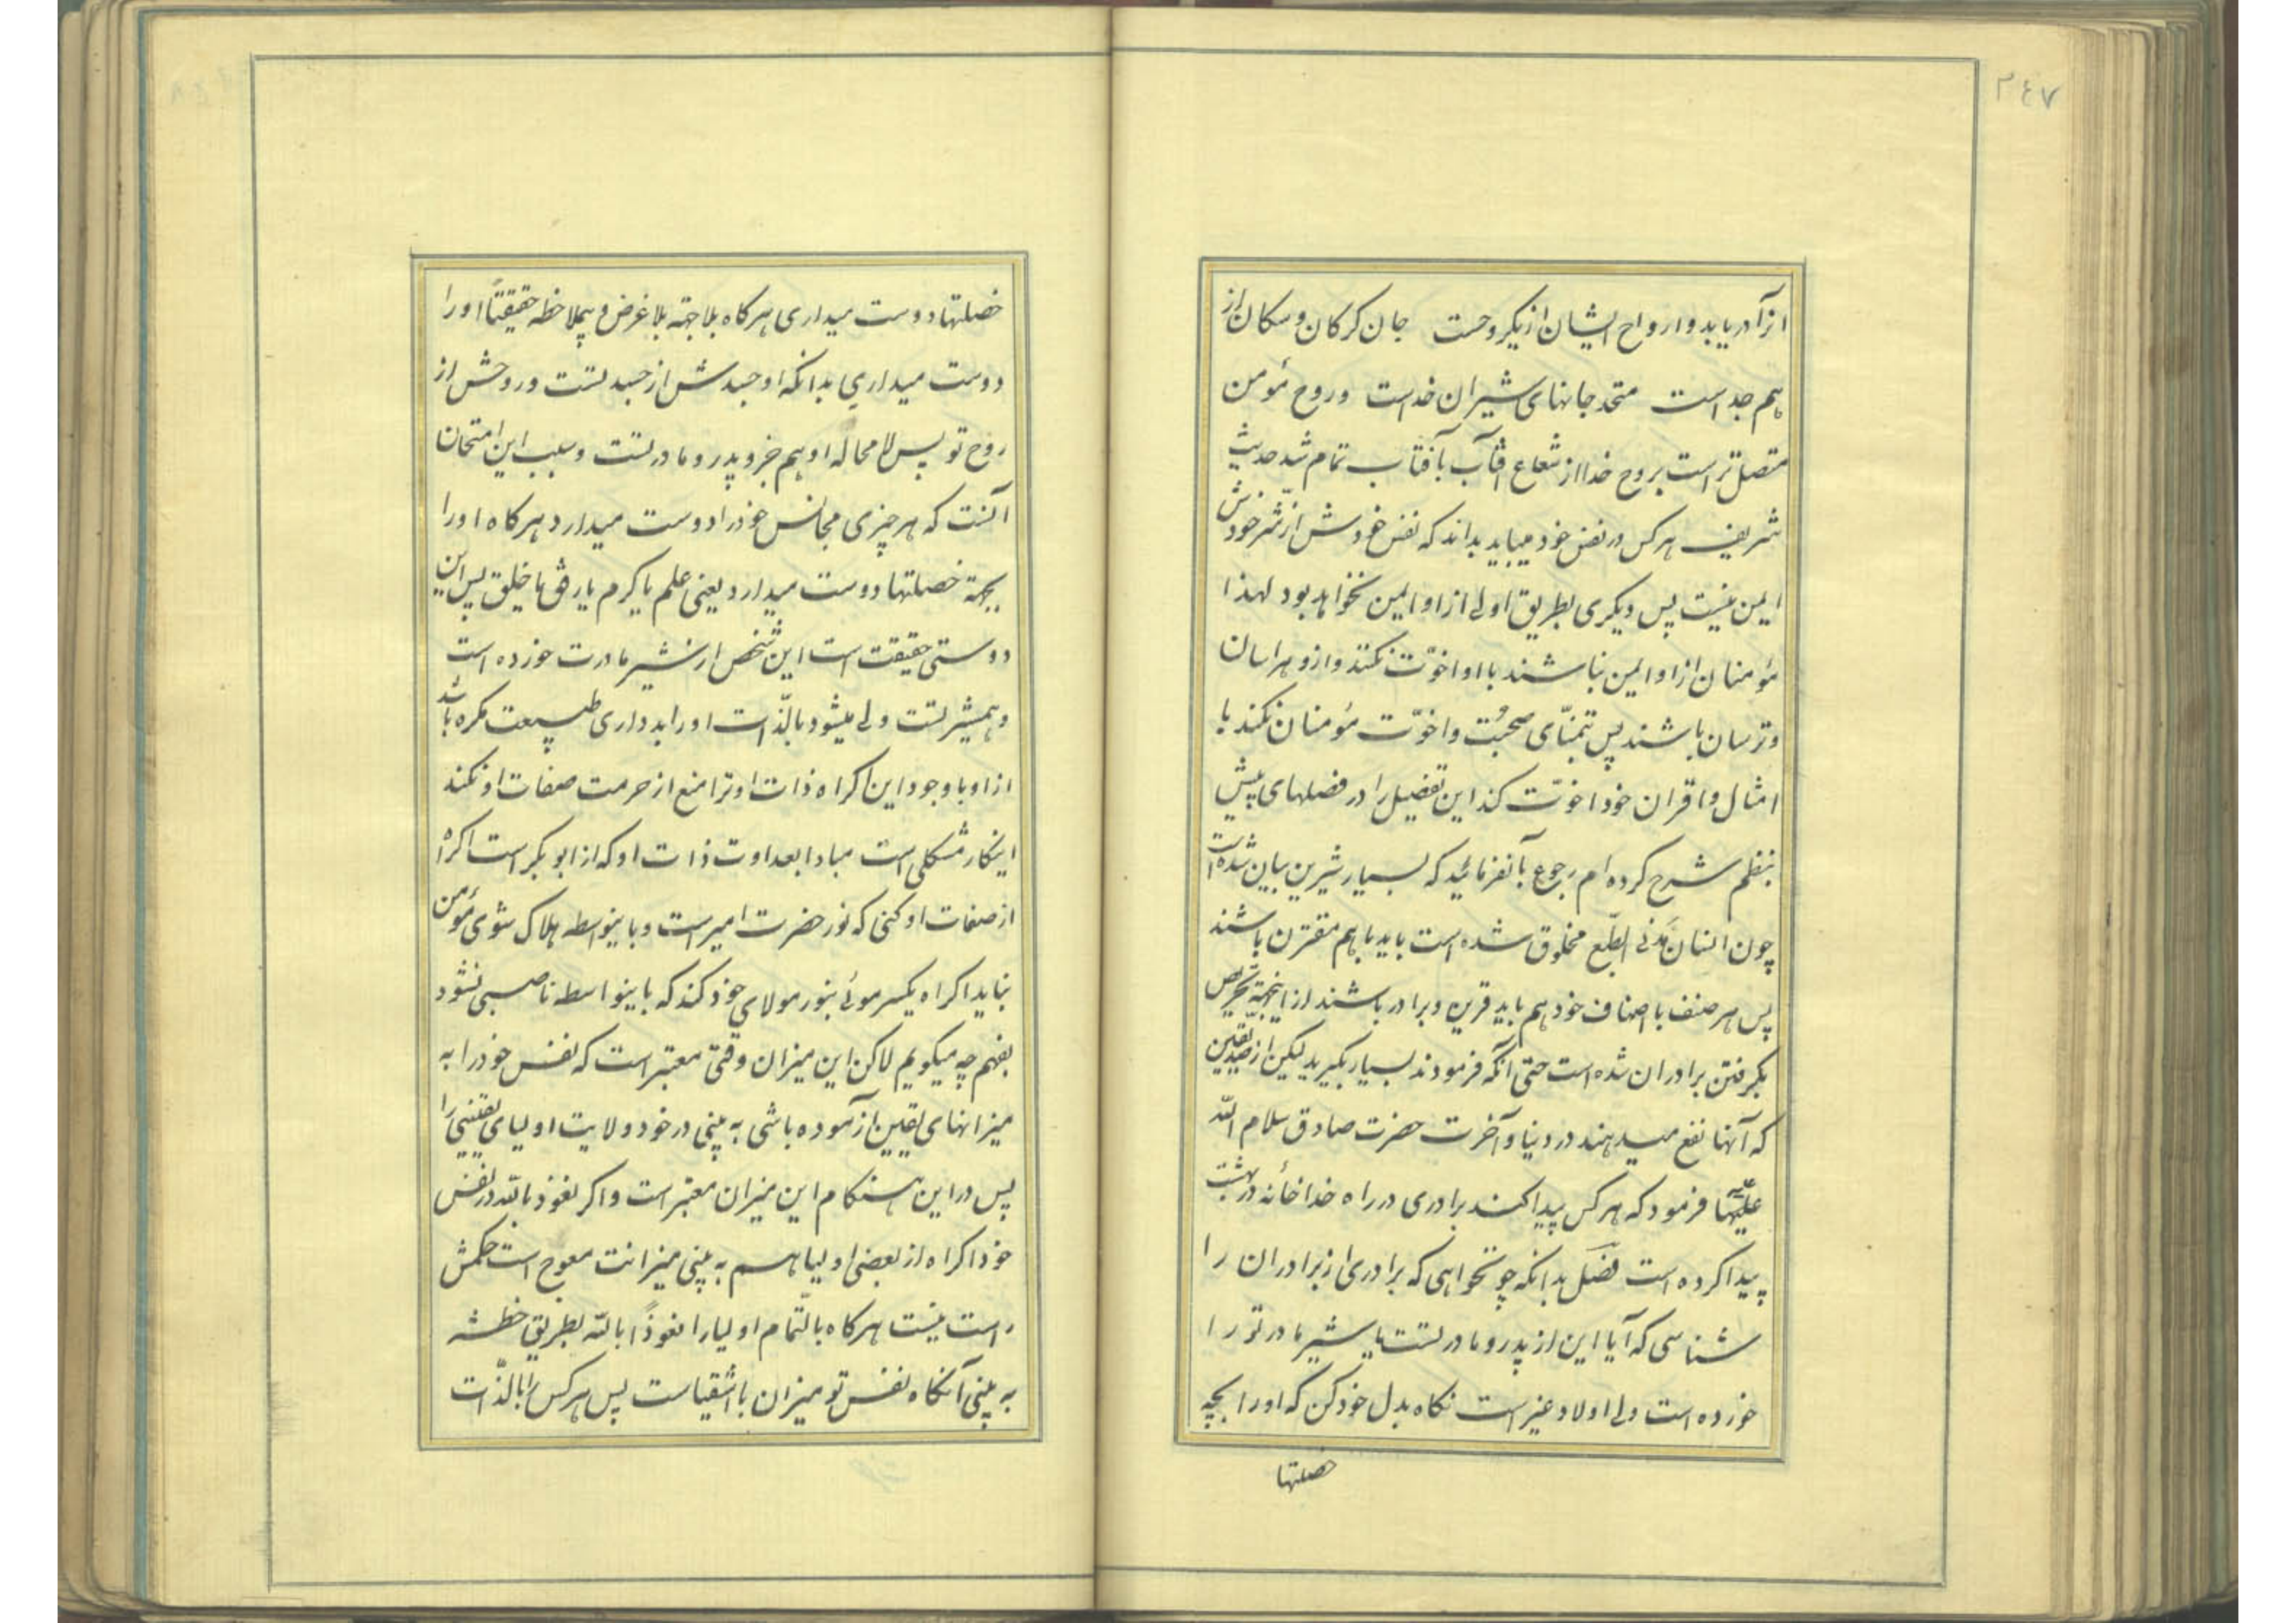 ۲۴۷
انرا دریابد و ارواح ایشان از یکروحست جان کرکان و سکان از
هم جداست متحد جانهای شیران خداست و روح مؤمن
متصل تر است بروح خدا از شعاع آفتاب بآفتاب تمام شد حدیث
شریف هر کس در نفس خود میباید بداند که نفس خودش از شر خودش
ایمن نیست پس دیکری بطریق اولی از او ایمن نخواهد بود لهذا
مؤمنان از او ایمن نباشند با او اخوّت نکنند و ازو هراسان
و ترسان باشند پس تمنّای صحبت و اخوّت مؤمنان نکند با
امثال و اقران خود اخوّت کند این تفصیل را در فصلهای پیش
بنظم شرح کرده ام رجوع بآن فرمائید که بسیار شیرین بیان شده است
چون انسان مدنی الطبع مخلوق شده است باید با هم مقترن باشند
پس هر صنف با اصناف خود هم باید قرین و برادر باشند از اینجهة تحریص
بکرفتن برادران شده است حتی آنکه فرمودند بسیار بکیرید لیکن از صدیقین
که آنها نفع میدهند در دنیا و آخرت حضرت صادق سلام الله
علیها فرمود که هر کس پیدا کند برادری در راه خدا خانهٔ در بهشت
پیدا کرده است فصل بدانکه چو نخواهی که برادری از برادران را
شناسی که آیا این از پدر و مادر تست یا شیر مادر تو را
خورده است ولی اولاد غیر است نکاه بدل خود کن که او را بچه
خصلتها
خصلتها دوست میداری هرکاه بلا جهة بلا غرض و بملاحظه حقیقتاً او را
دوست میداری بدانکه او جسدش از جسد تست و روحش از
روح تو پس لا محاله او هم جزو پدر و مادر تست و سبب این امتحان
آنست که هر چیزی مجانس خود را دوست میدارد هرکاه او را
بجهة خصلتها دوست میدارد یعنی علم یا کرم یا رفق یا خلق پس این
دوستی حقیقت است این شخص از شیر مادرت خورده است
و همشیر تست ولی میشود بالذّات او را بد داری طبیعت مکره باشد
از او با وجود این اکراه ذات او ترا منع از حرمت صفات او نکند
اینکار مشکلی است مبادا بعداوت ذات او که از ابو بکر است اکراه
از صفات او کنی که نور حضرت امیر است و باینواسطه هلاک شوی مؤمن
نباید اکراه یکسر موئی بنور مولای خود کند که باینواسطه ناصبی نشود
بفهم چه میکویم لاکن این میزان وقتی معتبر است که نفس خود را به
میزانهای یقین آزموده باشی به بینی در خود ولایت اولیای یقینی را
پس در این هنکام این میزان معتبر است و اکر نعوذ بالله در نفس
خود اکراه از بعضی اولیا هم به بینی میزانت معوج است حکمش
راست نیست هرکاه بالتّمام اولیا را نعوذاً بالله بطریق خطشه
به بینی آنکاه نفس تو میزان با اشقیاست پس هر کس را بالذّات